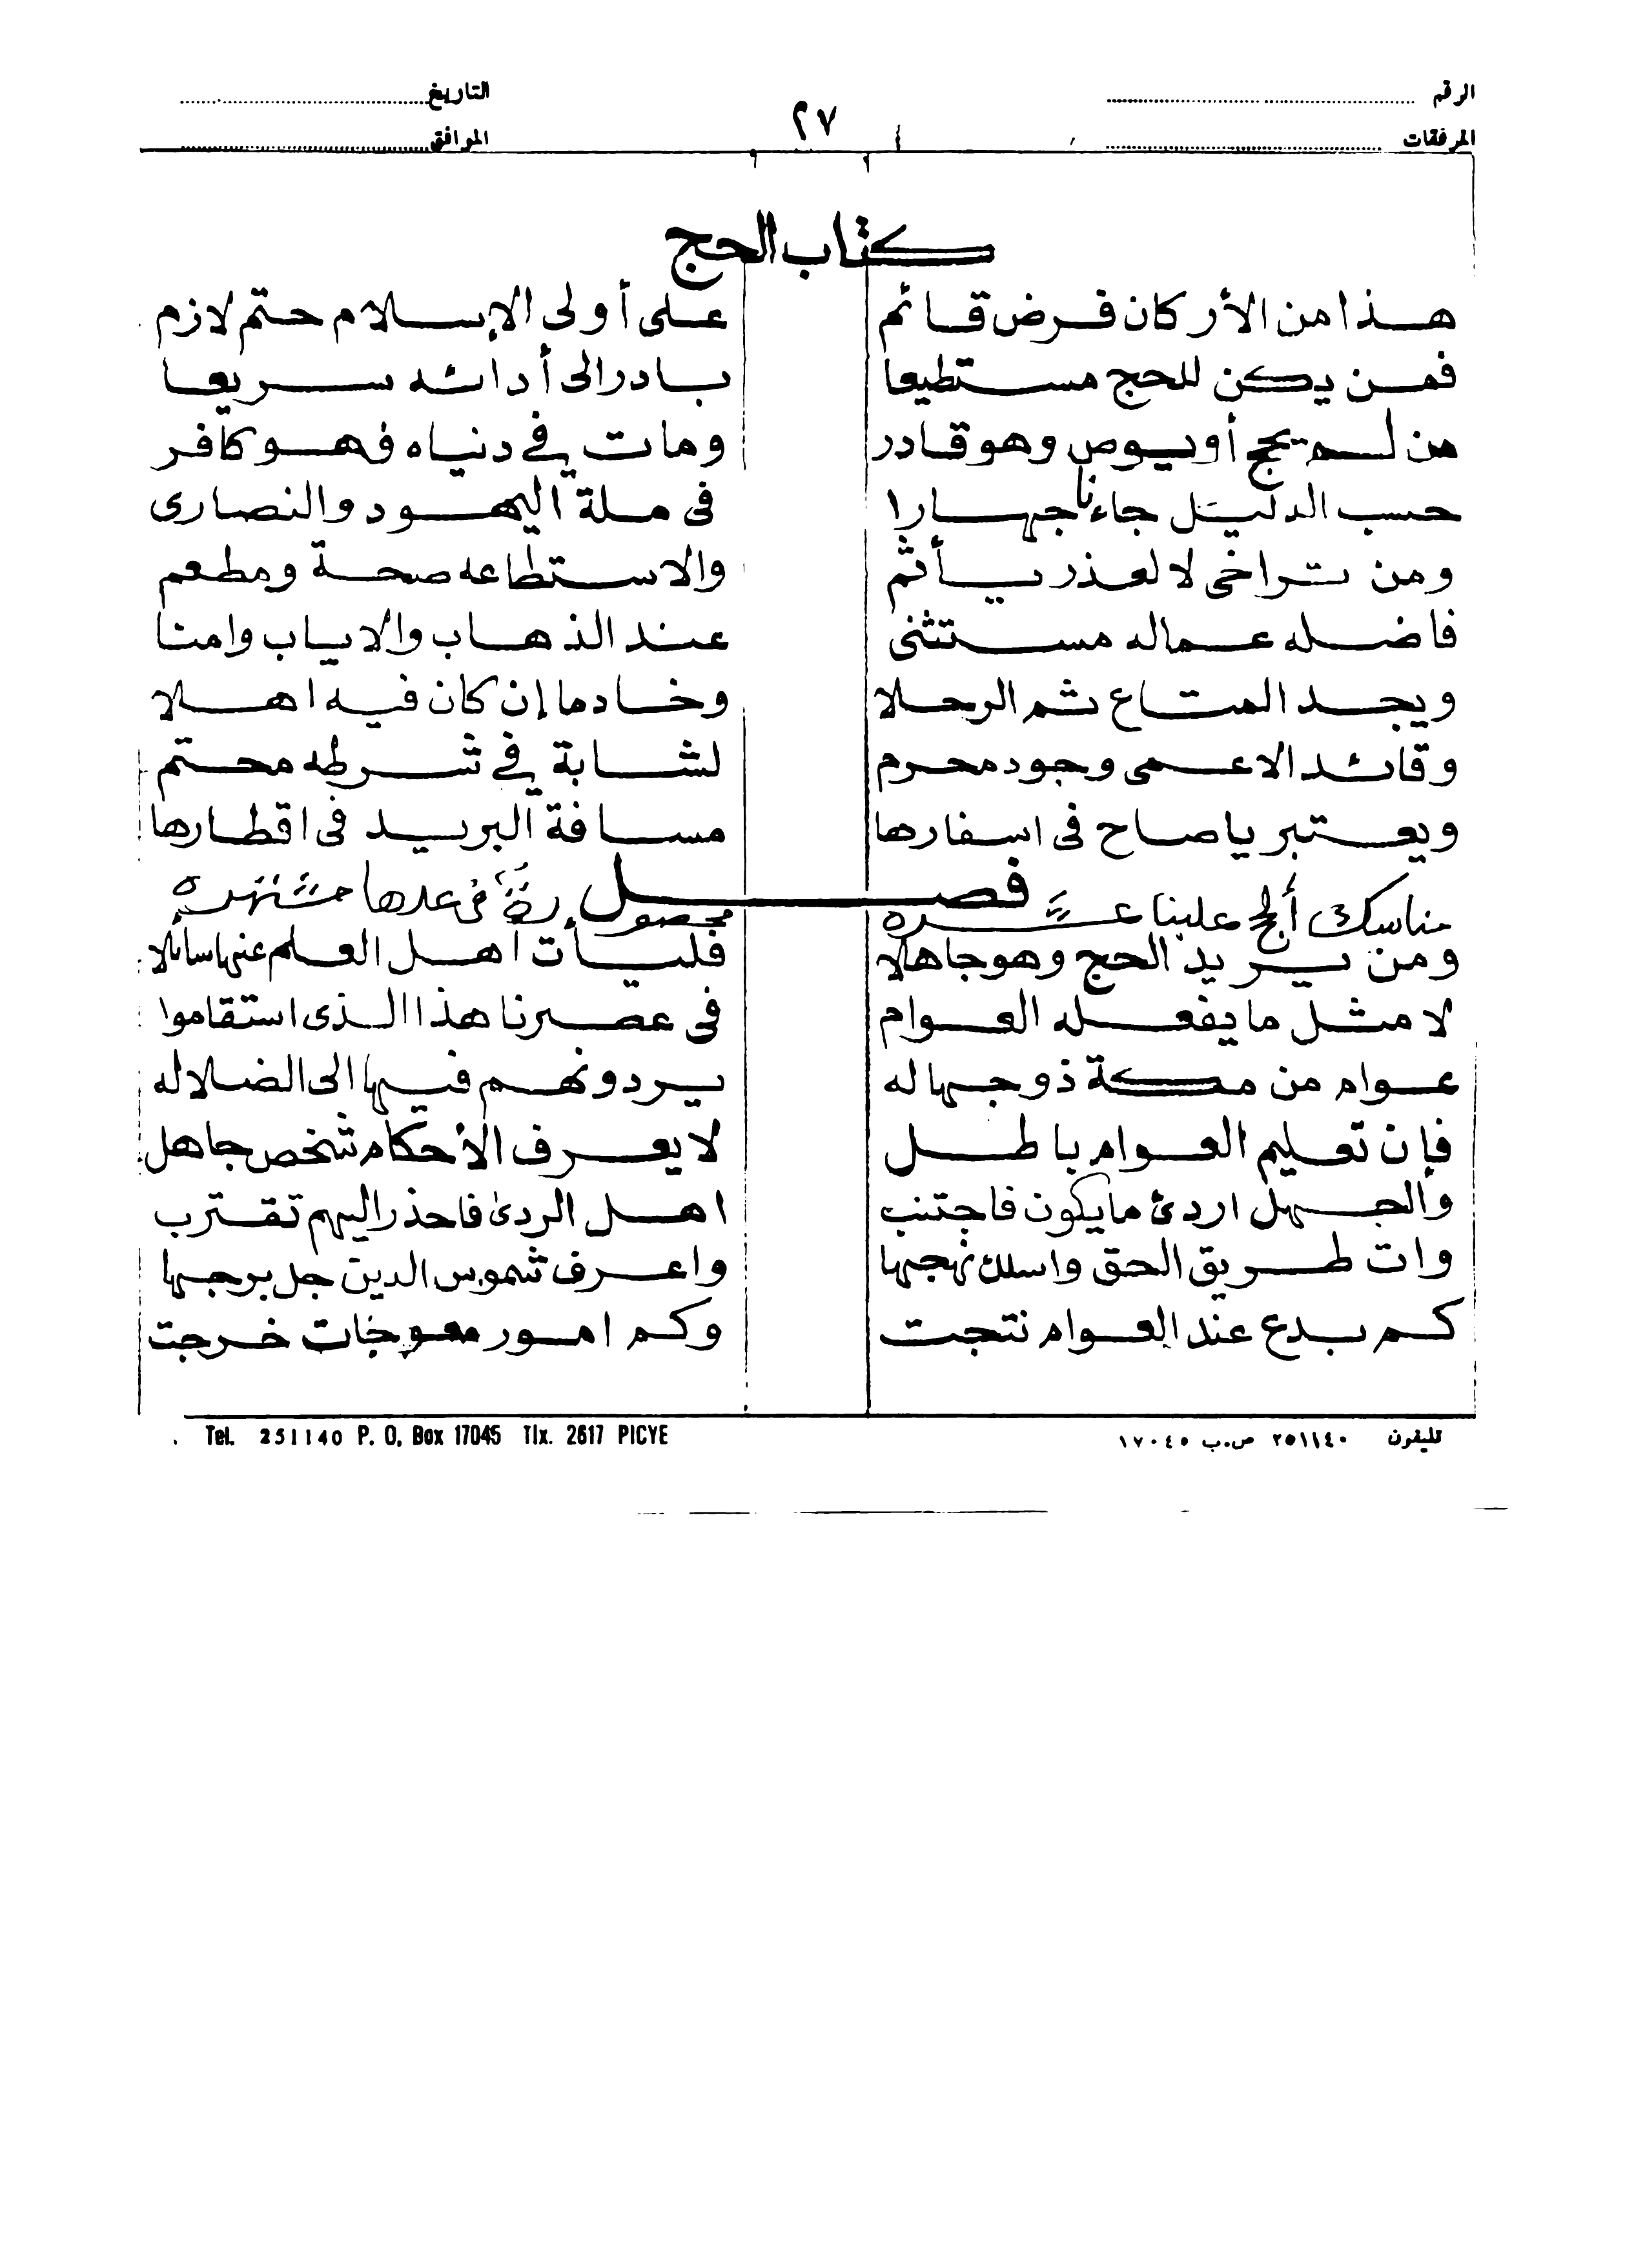 الرقم التاريخ
المرفقات ٢٧ الموافق
كتاب الحج
هذا من الأركان فرض قائم على أولى الإسلام حتم لازم
فمن يكن للحج مستطيعا بادر الى أدائه سريعا
من لم يحج أو يوص وهو قادر ومات في دنياه فهو كافر
حسب الدليل جاءنا جهارا فى ملة اليهود والنصارى
ومن تراخى لا لعذر يأثم والاستطاعه صحة ومطعم
فاضله عماله مستثنى عند الذهاب والاياب وامنا
ويجد المتاع ثم الرحلا وخادما إن كان فيه اهلا
وقائد الاعمى وجود محرم لشابة في شرطه محتم
ويعتبر ياصاح فى اسفارها مسافة البريد فى اقطارها
فصل
مناسك الحج علينا عشره محصورة فى عدها مشتهره
ومن يريد الحج وهو جاهلا فليأت اهل العلم عنها سائلا
لا مثل ما يفعله العوام فى عصرنا هذا الذى استقاموا
عوام من مكة ذو جهاله يردونهم فيها الى الضلاله
فإن تعليم العوام باطل لا يعرف الأحكام شخص جاهل
والجهل اردئ ما يكون فاجتنب اهل الردئ فاحذر اليهم تقترب
وات طريق الحق واسلك نهجها واعرف شموس الدين جل برجها
كم بدع عند العوام نتجت وكم امور معوجات خرجت
تليفون ٢٥١١٤٠ ص.ب ١٧٠٤٥ Tel. 251140 P. O, Box 17045 Tlx. 2617 PICYE